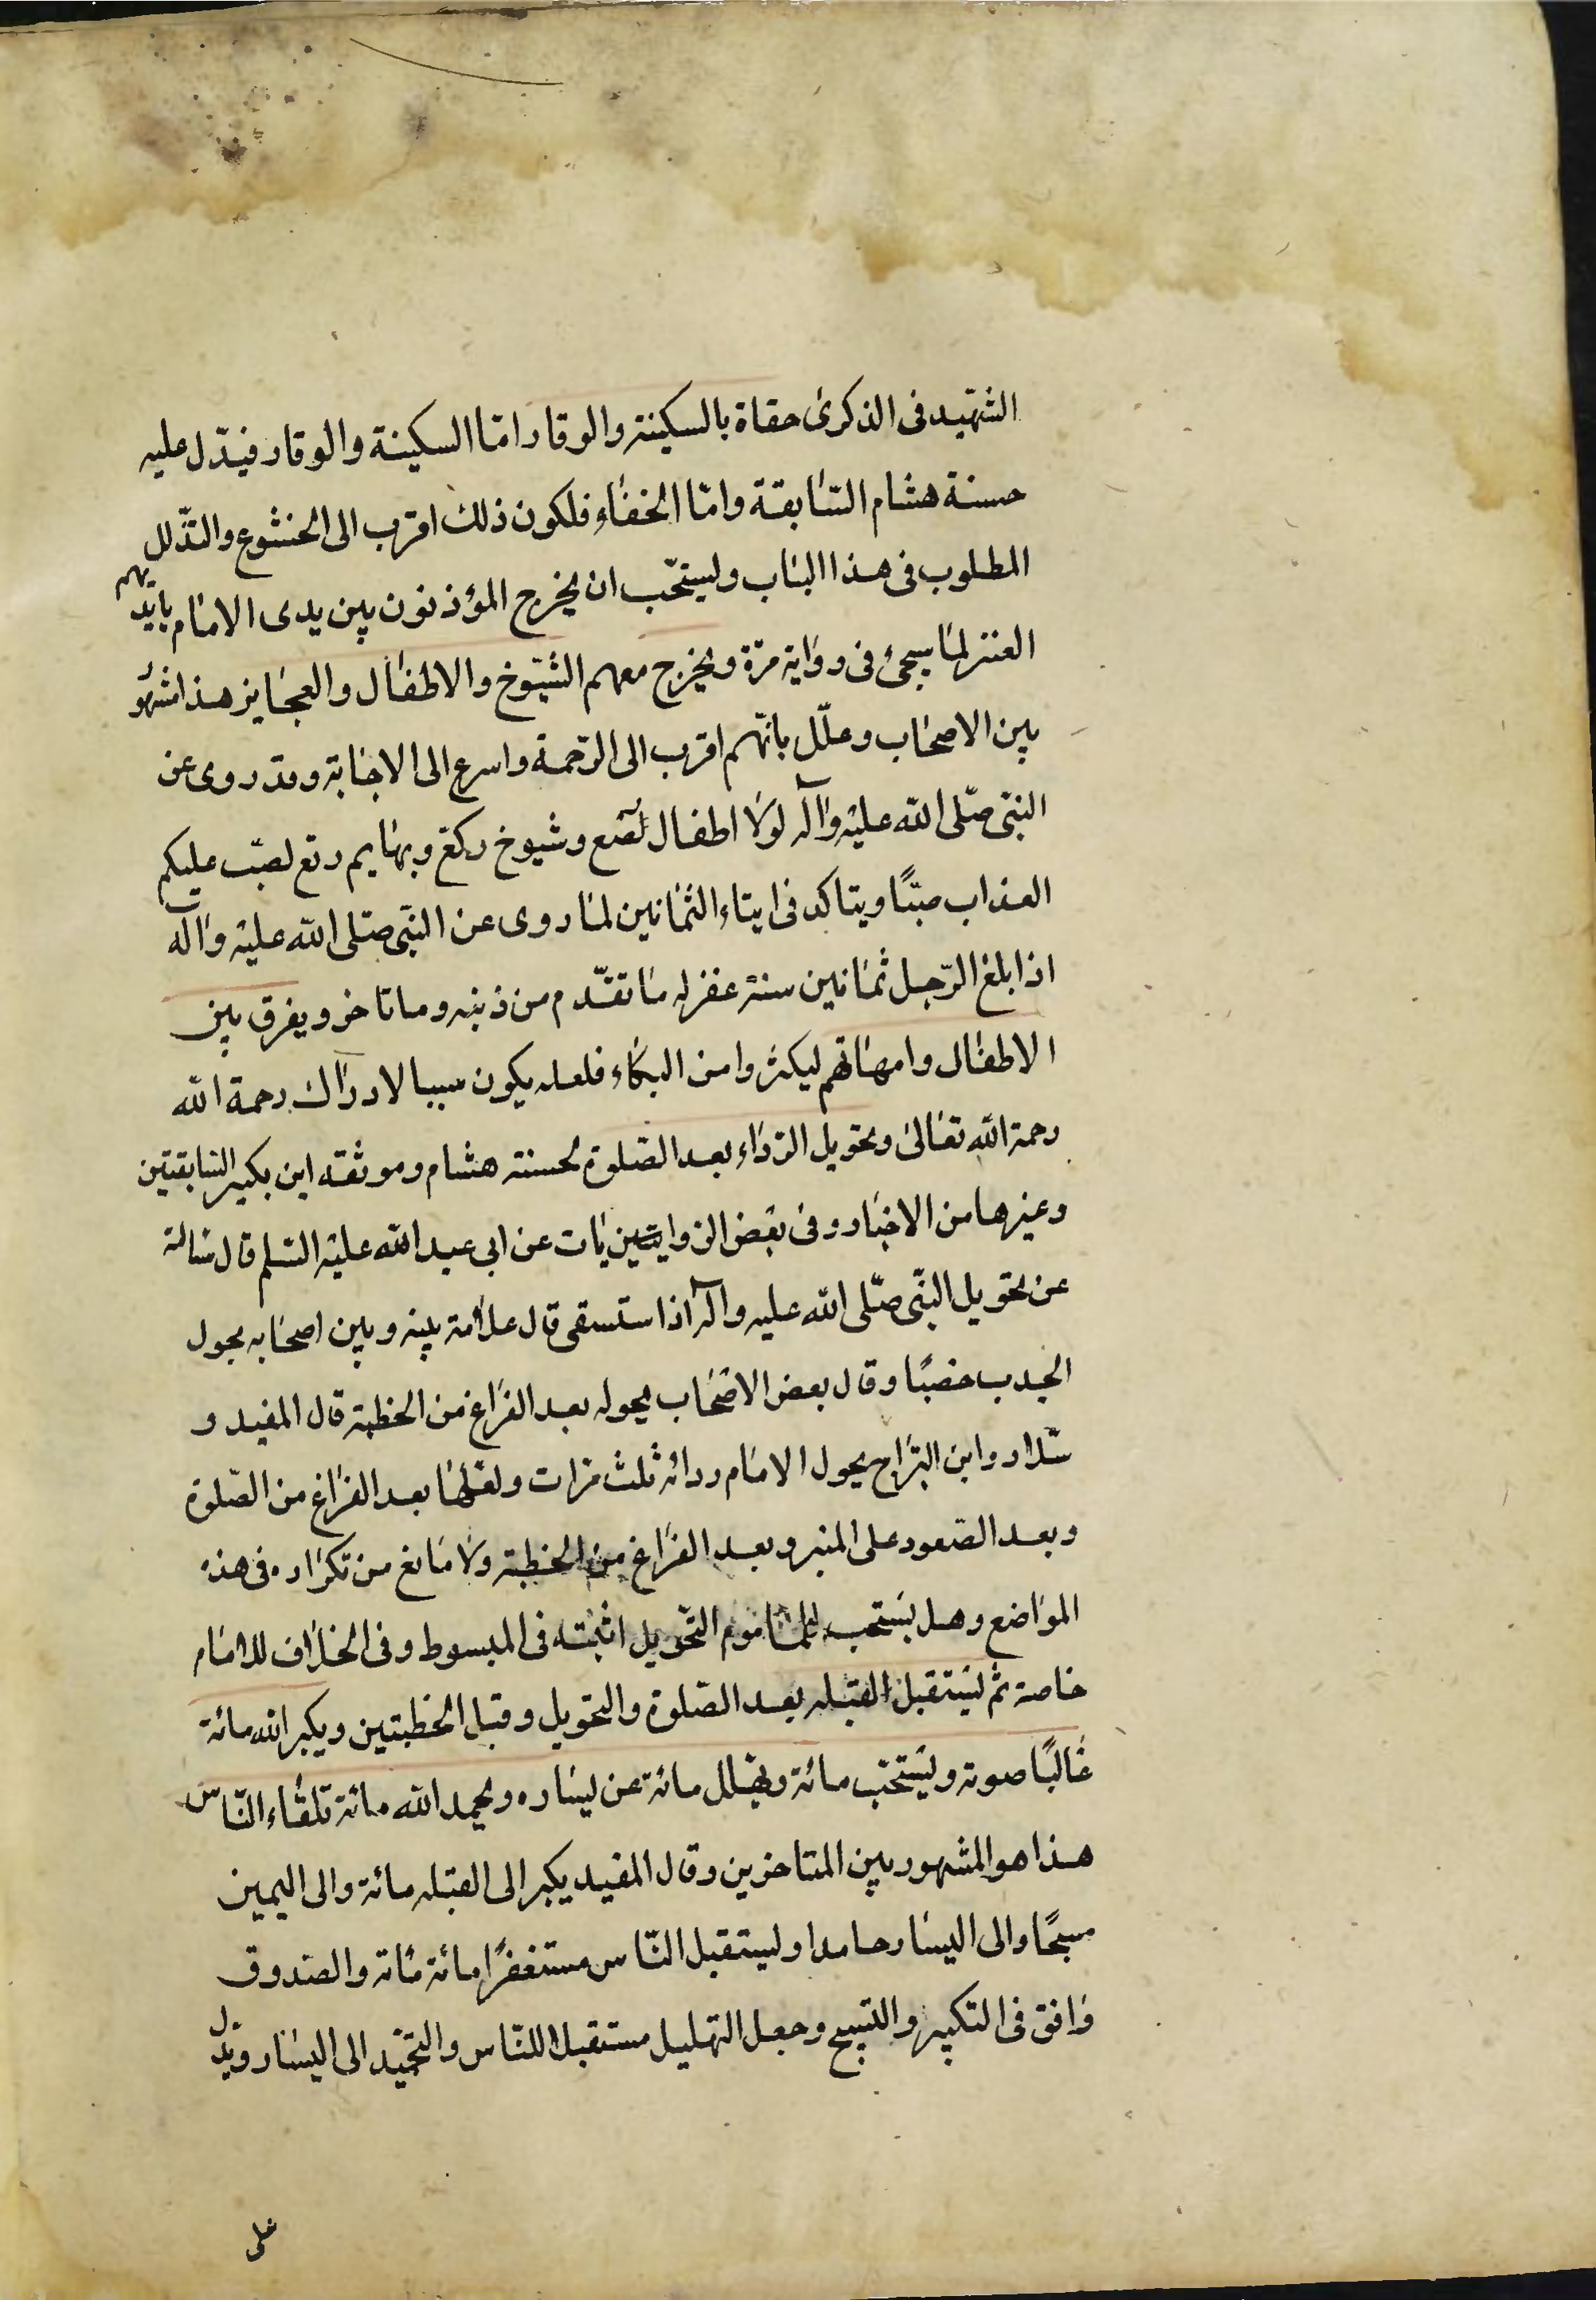 الشهيد فى الذكرى حفاة بالسكينة والوقار امّا السكينة والوقار فيدّل عليه
حسنة هشام السّابقة وامّا الخفاء فلكون ذلك اقرب الى الخشوع والتذّلل
المطلوب فى هذا الباب وليستحّب ان يخرج المؤذنون بين يدى الامام بايديهم
العنز لما سيجئ فى رواية مرّة ويخرج معهم الشيّوخ والاطفال والعجايز هذا مشهو
بين الاصحاب وعلّل بانّهم اقرب الى الرّحمة واسرع الى الاجابة وقد روى عن
النبّى صلّى الله عليه وآله لولا اطفال رُضّع وشيوخ ركع وبهايم رتع لصبّ عليكم
العذاب صبًّا ويتاكد فى ايتاء الثمانين لما روى عن النبّى صلّى الله عليه وآله
اذا بلغ الرّجل ثمانين سنة غفر له ما تقدّم من ذنبه وما تاخر ويفرق بين
الاطفال وامهاتهم ليكثروا من البكاء فلعله يكون سببا لادراك رحمة الله
رحمة الله تعالى وتحويل الرّداء بعد الصّلوة لحسنة هشام وموثقة ابن بكير السّابقتين
وغيرها من الاخبار وفى بعض الروايات عن ابى عبد الله عليه السّلم قال سالته
عن تحويل النبّى صلّى الله عليه وآله اذا استسقى قال علامة بينه وبين اصحابه يحول
الجدب خصبًا وقال بعض الاصحاب يحوله بعد الفراغ من الخطبة قال المفيد و
سّلار وابن البرّاج يحول الامام ردائه ثلث مرّات ولعلها بعد الفراغ من الصّلوة
وبعد الصّعود على المنبر وبعد الفراغ من الخطبة ولا مانع من تكراره فى هذه
المواضع وهل يستحب للماموم التّحويل اثبته فى المبسوط وفى الخلاف للامام
خاصة ثم ليستقبل القبله بعد الصّلوة والتحويل وقبل الخطبتين ويكبر الله مائة
غالبًا صوته ويستحّب مائة ويهّلل مائة عن يساره ويحمد الله مائة تلقاء النّاس
هذا هو المشهور بين المتاخرين وقال المفيد يكبر الى القبله مائة والى اليمين
مسبحًا والى اليسار حامدا وليستقبل النّاس مستغفرًا مائة مائة والصّدوق
وافق فى التكبير والتسبيح وجعل التهليل مستقبلا للنّاس والتحميد الى اليسار ويدّل
على